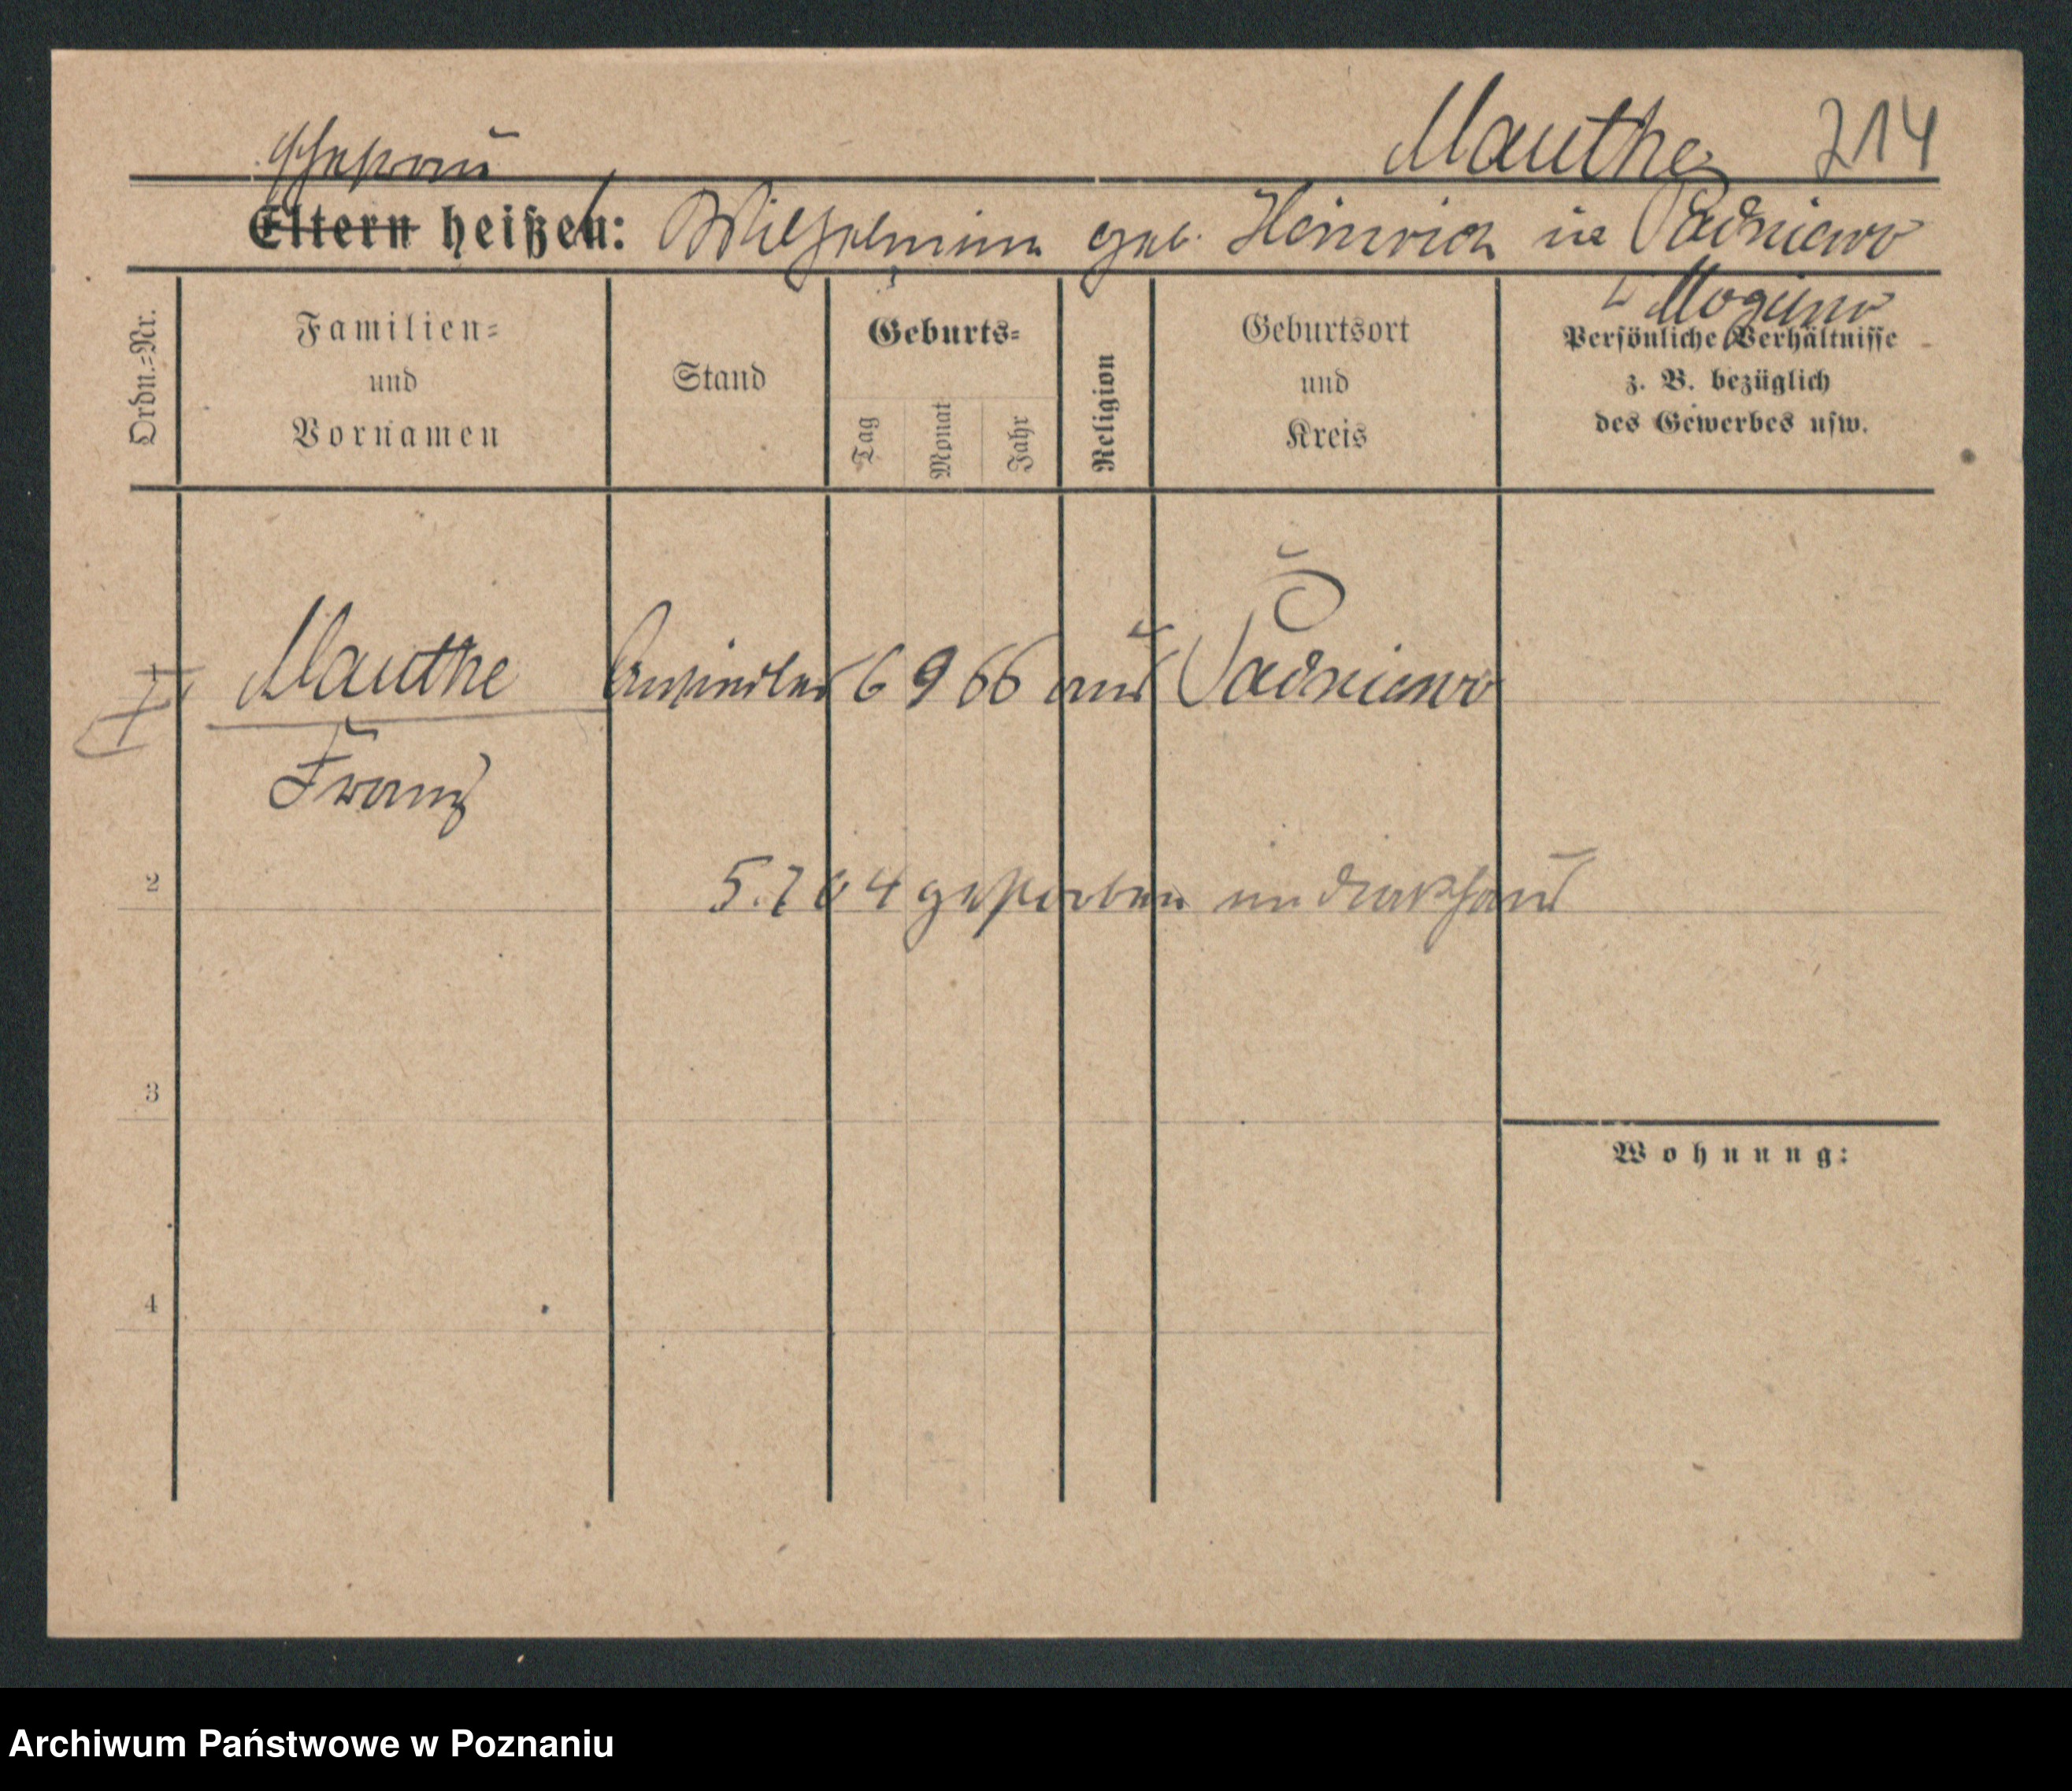 Ehefrau
Mauthe 214
Eltern heißen: Wilhelmine geb. Heinrich in Padniewo
Mogilno
Ordn.-Nr.
Familien-
und
Vornamen
Stand
Geburts-
Tag
Monat
Jahr
Religion
Geburtsort
und
Kreis
Persönliche Verhältnisse
z. B. bezüglich
des Gewerbes usw.
Mauthe Ansiedler 6 9 66 aus Padniewo
Franz
2
5.7 04 gestorben im
3
4
Wohnung:
Archiwum Państwowe w Poznaniu